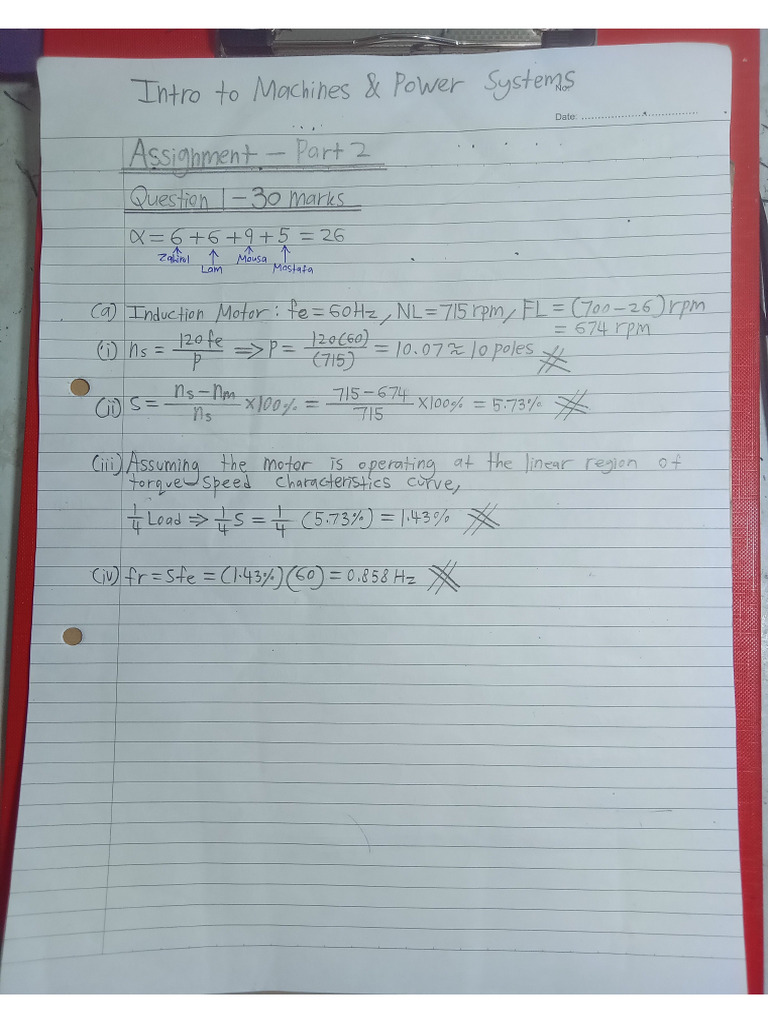 Intro to Machines & Power Systems
No.
Date: ....................................
Assignment - Part 2
Question 1 - 30 marks
α = 6 + 6 + 9 + 5 = 26
Zahirul Lam Mousa Mostafa
(a) Induction Motor : fe = 60Hz, NL = 715 rpm, FL = (700-26) rpm
= 674 rpm
(i) ns = 120fe/P ⟹ P = 120(60)/(715) = 10.07 ≈ 10 poles
(ii) S = (ns - nm)/ns × 100% = (715-674)/715 × 100% = 5.73%
(iii) Assuming the motor is operating at the linear region of
torque-speed characteristics curve,
1/4 Load ⟹ 1/4 S = 1/4 (5.73%) = 1.43%
(iv) fr = Sfe = (1.43%)(60) = 0.858 Hz